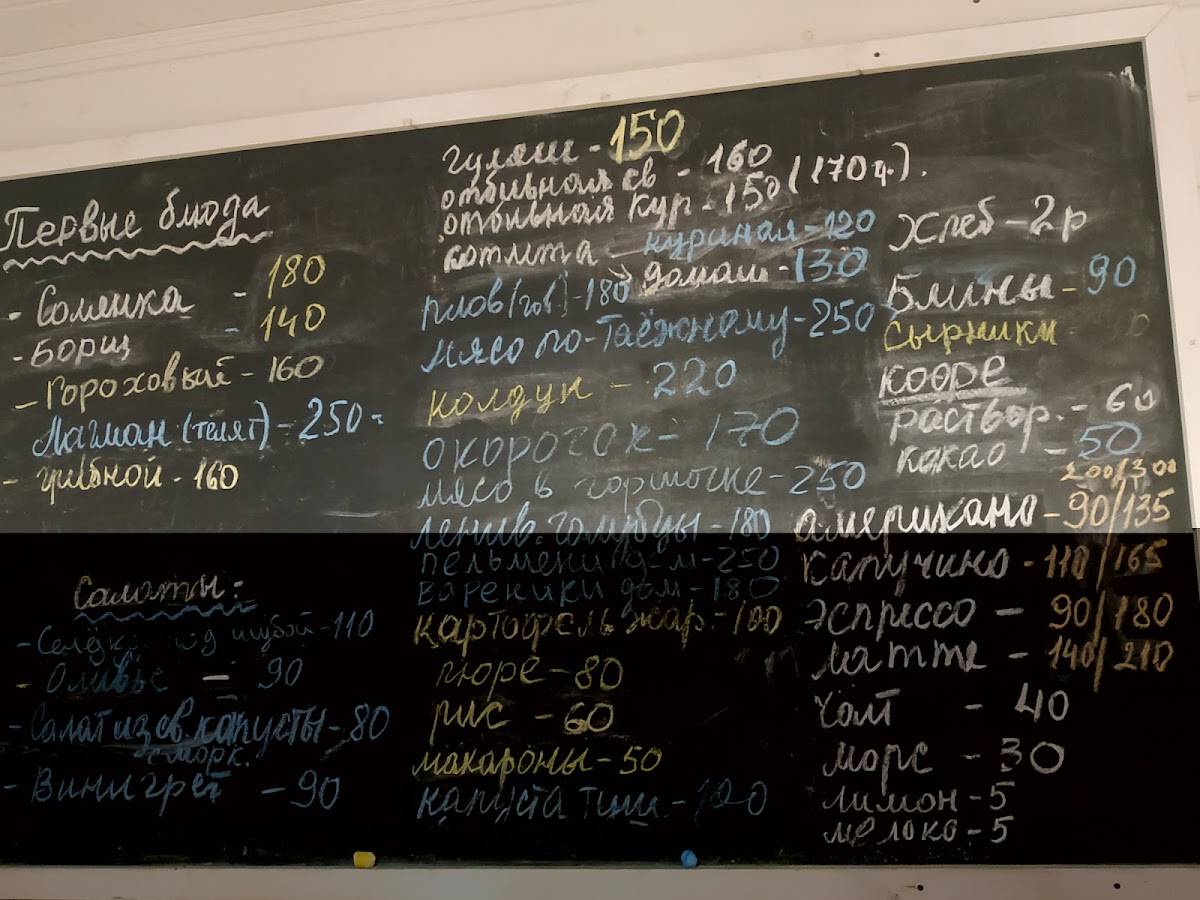 Первые блюда
- Солянка - 180
- Борщ - 140
- Гороховый - 160
Лагман (телят) - 250
- грибной - 160
Салаты:
- Селёдка под шубой - 110
- Оливье - 90
- Салат из св. капусты - 80
с морк.
- Винигрет - 90
гуляш - 150
отбивная св - 160
отбивная кур - 150 (170 ч.).
котлета - куриная - 120
домаш - 130
плов (гов.) - 180
мясо по-Таёжному - 250
колдун - 220
окорочок - 170
мясо в горшочке - 250
ленив. голубцы - 180
пельмени д-м - 250
вареники дом - 180
картофель жар. - 100
пюре - 80
рис - 60
макароны - 50
капуста туш -
Хлеб - 2р
Блины - 90
Сырники
кофе
раствор. - 60
какао - 50
200/300
американо - 90/135
капучино - 110/165
эспрессо - 90/180
латте - 140/210
чай - 40
морс - 30
лимон - 5
молоко - 5